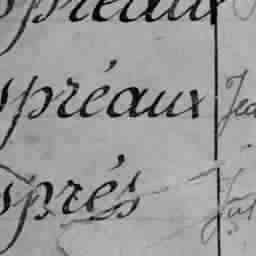 spréaux
spréaux Jea
sprés Jul